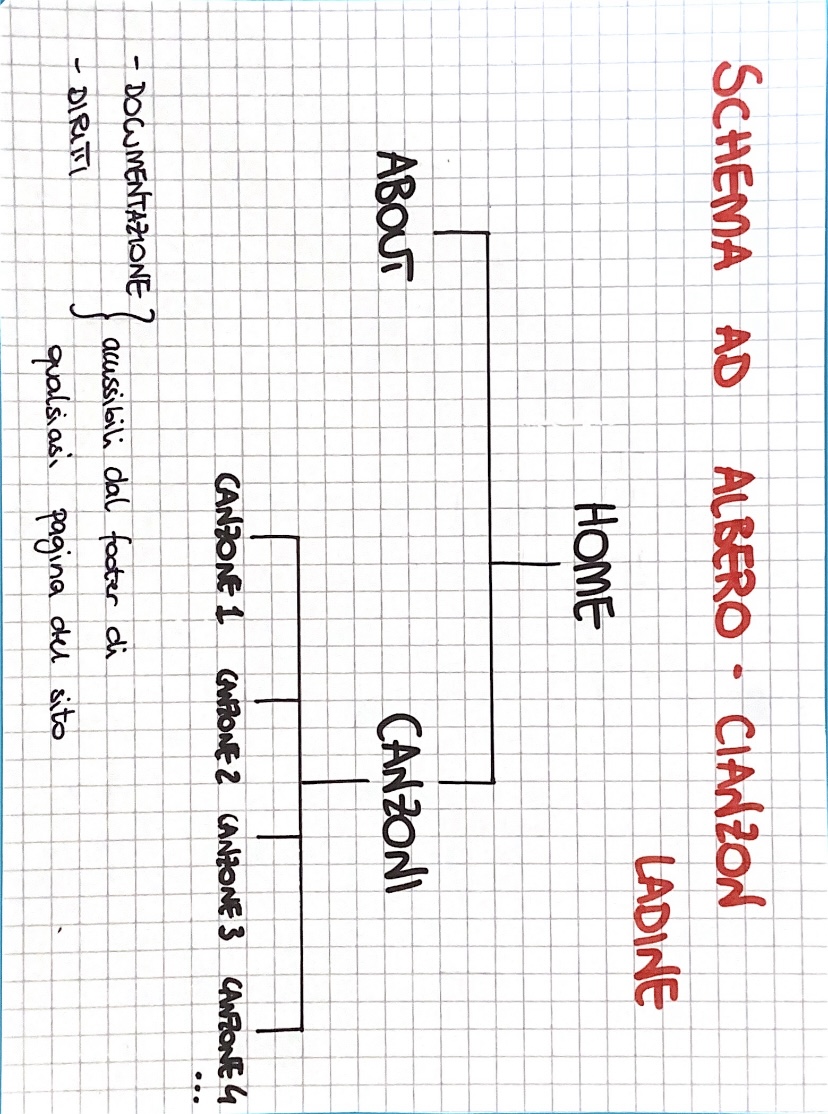 SCHEMA AD ALBERO - CIANZON
LADINE
HOME
ABOUT
CANZONI
CANZONE 1 CANZONE 2 CANZONE 3 CANZONE 4
...
- DOCUMENTAZIONE
- DIRITTI
accessibili dal footer di
qualsiasi pagina del sito